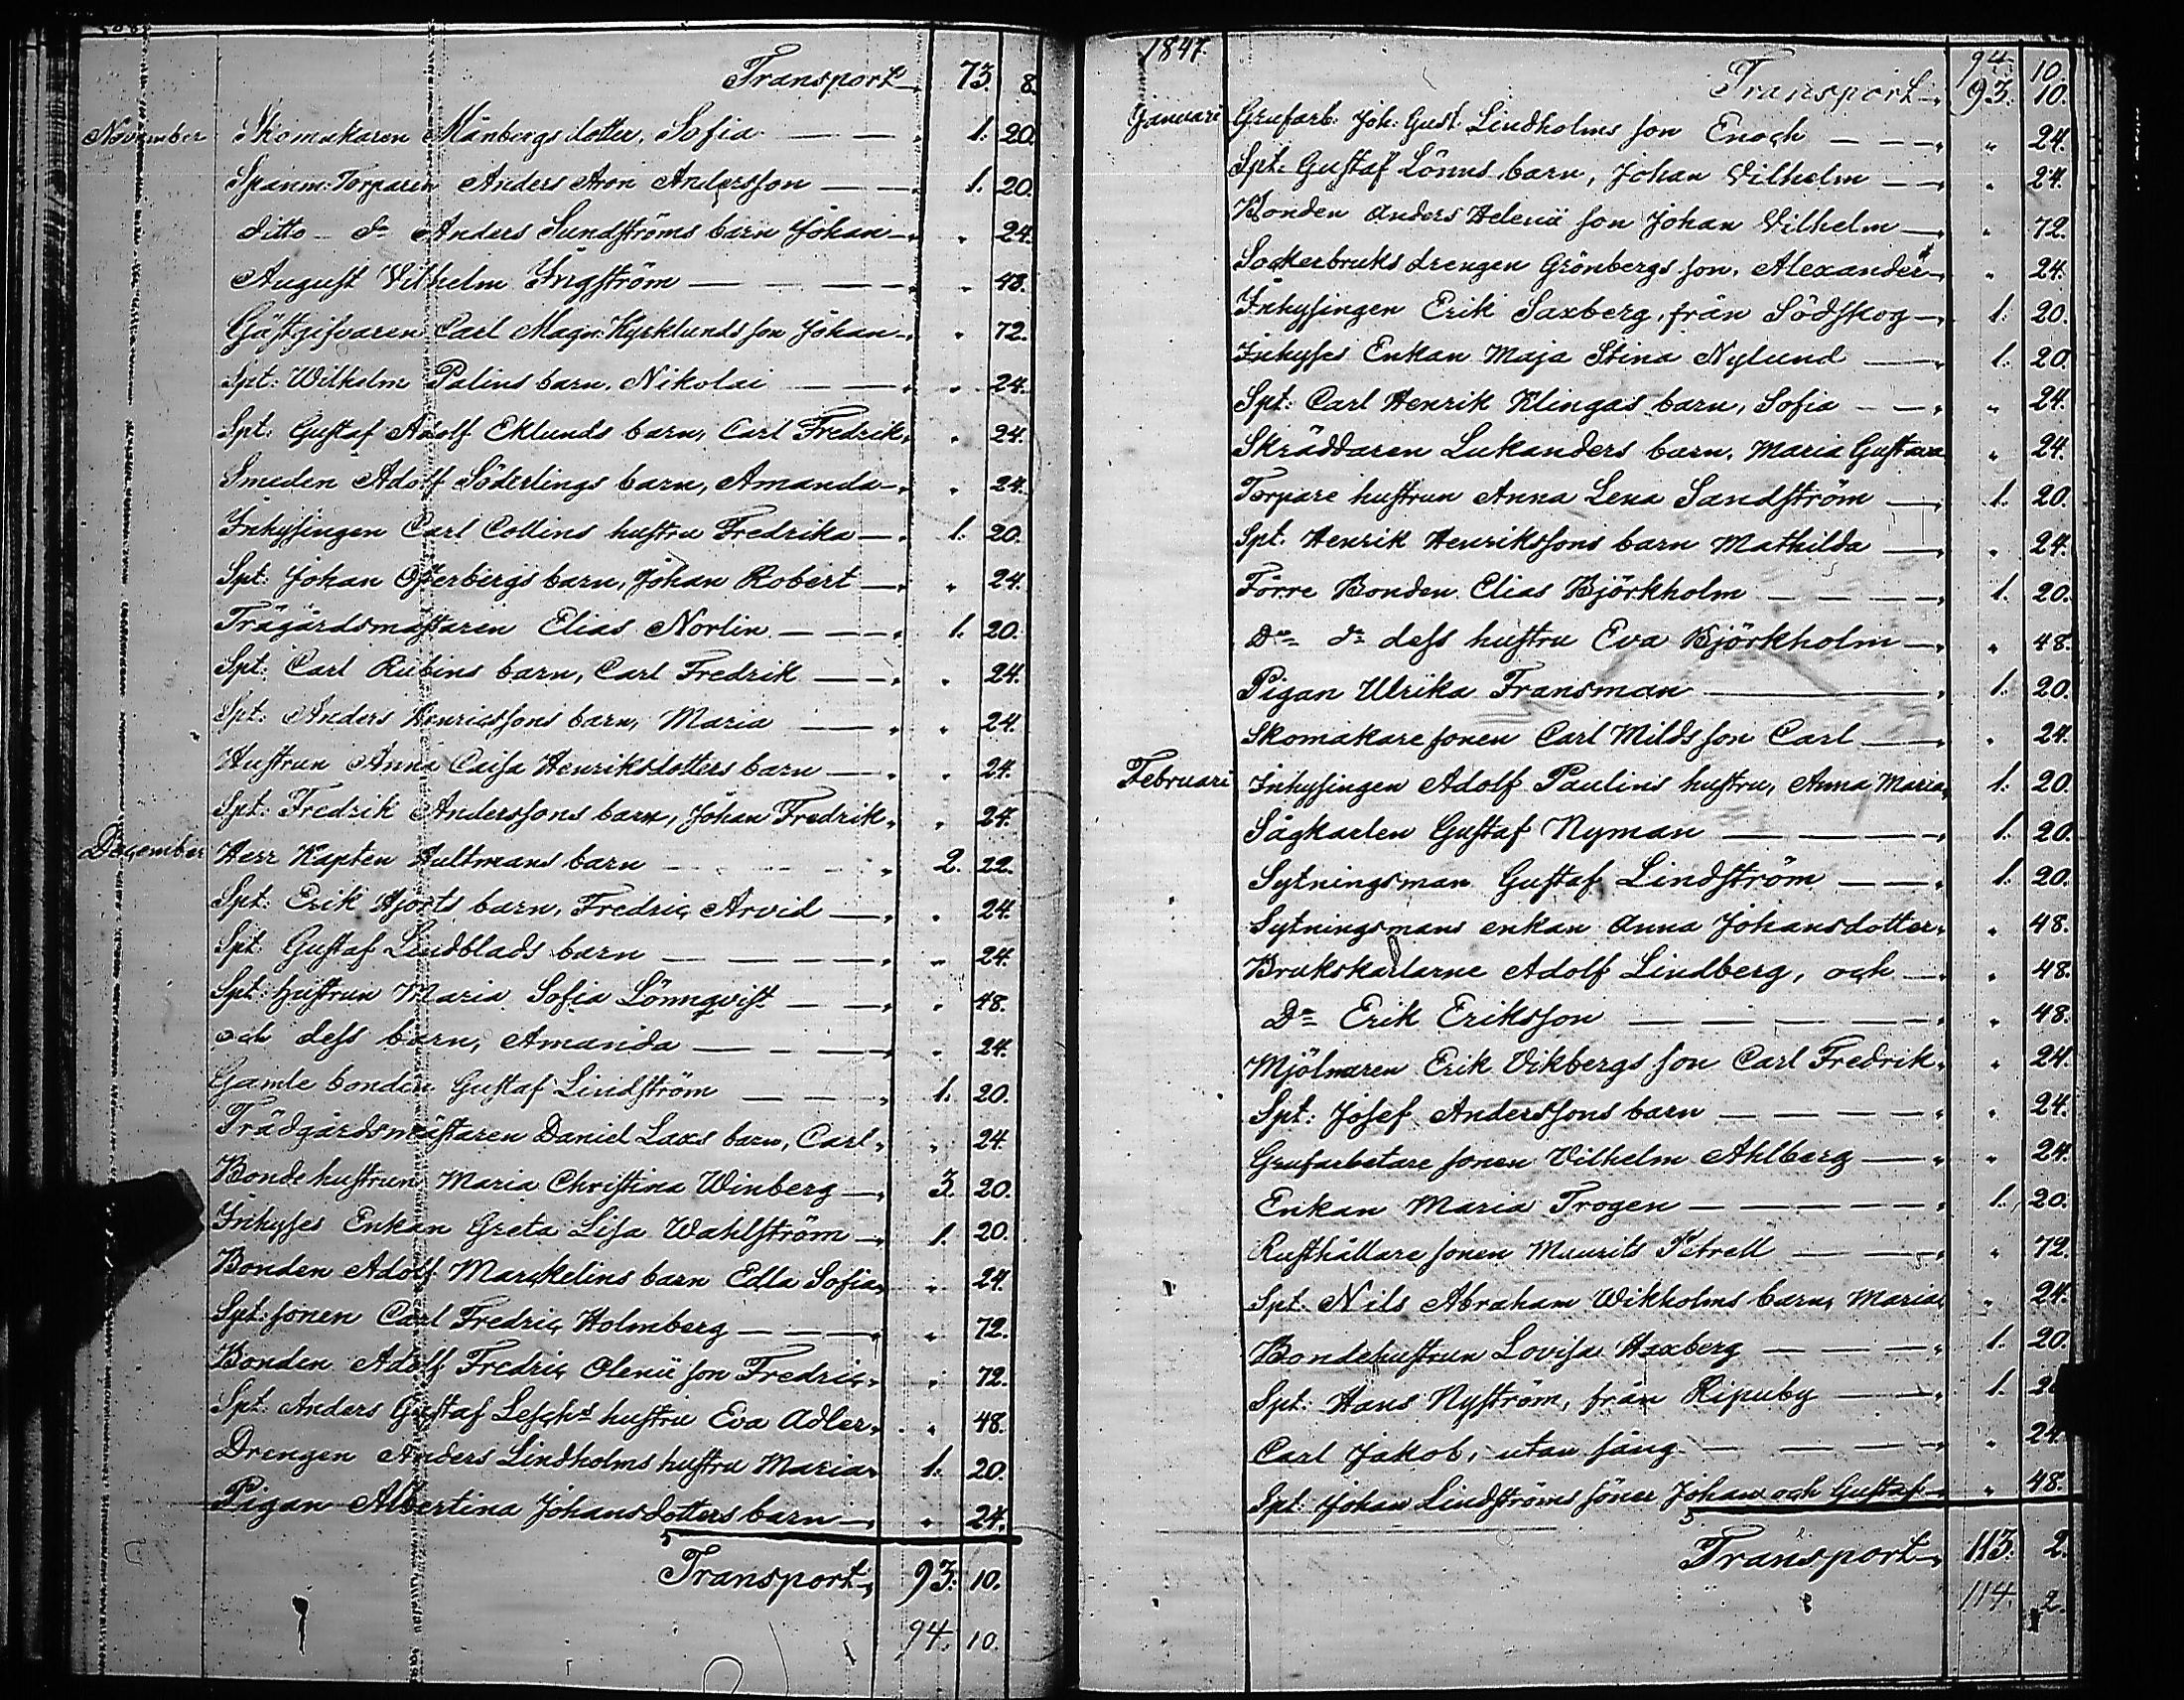 Transport 73. 8.
November Skomakaren Månbergs dotter, Sofia — — „ 1. 20.
Spanm: Torparen Anders Aron Andersson — — „ 1. 20.
ditto — do Anders Sundströms barn Johan — „ „ 24.
August Vilhelm Yngström — — — — „ „ 48.
Gästgifvaren Carl Magn: Kyrklunds son Johan — „ „ 72.
Spt: Wilhelm Palins barn, Nikolai — — — „ „ 24.
Spt: Gustaf Adolf Eklunds barn, Carl Fredrik „ „ 24.
Smeden Adolf Söderlings barn, Amanda — „ „ 24.
Inhysingen Carl Collins hustru Fredrika — „ 1. 20.
Spt: Johan Österbergs barn, Johan Robert — „ „ 24.
Trägårdsmastaren Elias Norlin — — — „ 1. 20.
Spt: Carl Rubins barn, Carl Fredrik — — „ „ 24.
Spt: Anders Henricssons barn, Maria — — „ „ 24.
Hustrun Anna Caisa Henriksdotters barn — „ „ 24.
Spt: Fredrik Anderssons barn, Johan Fredrik „ „ 24.
December Herr Kapten Hultmans barn — — — „ 2. 22.
Spt: Erik Hjorts barn, Fredric Arvid — „ „ 24.
Spt: Gustaf Lindblads barn — — — — „ „ 24.
Spt: hustrun Maria Sofia Lönnqvist — — „ „ 48.
och dess barn, Amanda — — — — „ „ 24.
Gamle bonden Gustaf Lindström — — — „ 1. 20.
Trädgårdsmästaren Daniel Laxs barn, Carl „ „ 24.
Bondehustrun Maria Christina Winberg — „ 3. 20.
Inhyses Enkan Greta Lisa Wahlström — „ 1. 20.
Bonden Adolf Marckelins barn Edla Sofia „ „ 24.
Spt: sonen Carl Fredric Holmberg — — — „ „ 72.
Bonden Adolf Fredric Olenii son Fredric „ „ 72.
Spt. Anders Gustaf Leschs hustru Eva Adler „ „ 48.
Drengen Anders Lindholms hustru Maria „ 1. 20.
Pigan Albertina Johansdotters barn — „ „ 24.
Transport „ 93. 10.
94. 10.
1847.
94. 10.
Transport „ 93. 10.
Januari Grufarb: Joh: Gust: Lindholms son Enoch — — — „ „ 24.
Spt: Gustaf Lönns barn, Johan Vilhelm — — „ „ 24.
Bonden Anders Helenii son Johan Vilhelm — „ „ 72.
Sockerbruks drengen Grönbergs son, Alexander „ „ 24.
Inhysingen Erik Saxberg, från Södskog — „ 1. 20.
Inhyses Enkan Maja Stina Nylund — „ 1. 20.
Spt: Carl Henrik Klingas barn, Sofia — — „ „ 24.
Skräddaren Lukanders barn, Maria Gustava „ 24.
Torpare hustrun Anna Lena Sandström — „ 1. 20.
Spt. Henrik Henrikssons barn Mathilda — „ „ 24.
Förre Bonden Elias Björkholm — — — — „ 1. 20.
Do do dess hustru Eva Björkholm — „ „ 48.
Pigan Ulrika Fransman — „ 1. 20.
Skomakare sonen Carl Milds son Carl — „ „ 24.
Februari Inhysingen Adolf Paulins hustru, Anna Maria „ 1. 20.
Sågkarlen Gustaf Nyman — — — „ 1. 20.
Sytningsman Gustaf Lindström — — „ 1. 20.
Sytningsmans enkan Anna Johansdotter „ „ 48.
Brukskarlarne Adolf Lindberg, och — „ „ 48.
Do Erik Eriksson — — — — — „ „ 48.
Mjölnaren Erik Vikbergs son Carl Fredrik „ „ 24.
Spt: Josef Anderssons barn — — — — „ „ 24.
Grufarbetare sonen Vilhelm Ahlberg — „ „ 24.
Enkan Maria Trogen — — — — — „ 1. 20.
Rusthållare sonen Maurits Petrell — — „ „ 72.
Spt. Nils Abraham Wikholms barn, Maria „ „ 24.
Bondehustrun Lovisa Haxberg — — — „ 1. 20.
Spt: Hans Nyström, från Ripuby — — „ 1.
Carl Jakob, utan sång — — — — „ „ 24.
Spt: Johan Lindströms söner Johan och Gustaf — „ „ 48.
Transport „ 113. 2.
114. 2.